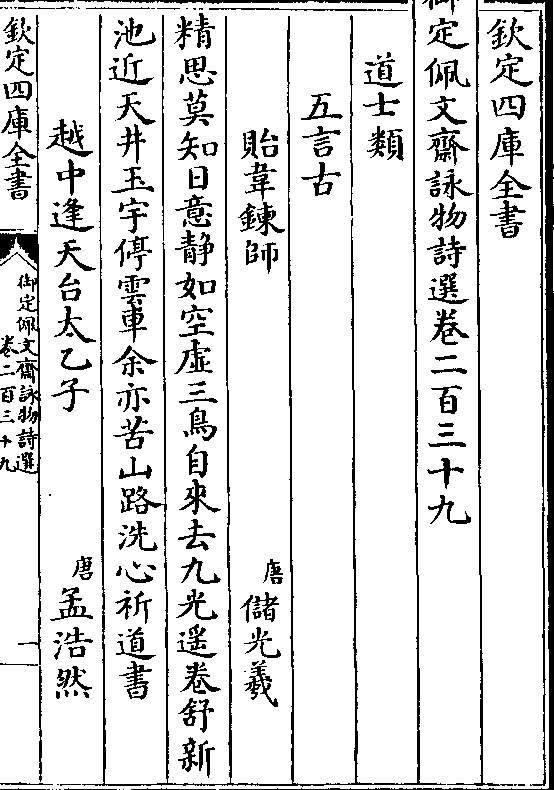 欽定四庫全書
御定佩文齋詠物詩選卷二百三十九
道士類
五言古
貽韋鍊師 唐 儲光羲
精思莫知日意靜如空虛三鳥自來去九光遥卷舒新
池近天井玉宇停雲車余亦苦山路洗心祈道書
越中逢天台太乙子 唐 孟浩然
欽定四庫全書
御定佩文齋詠物詩選
卷二百三十九
一